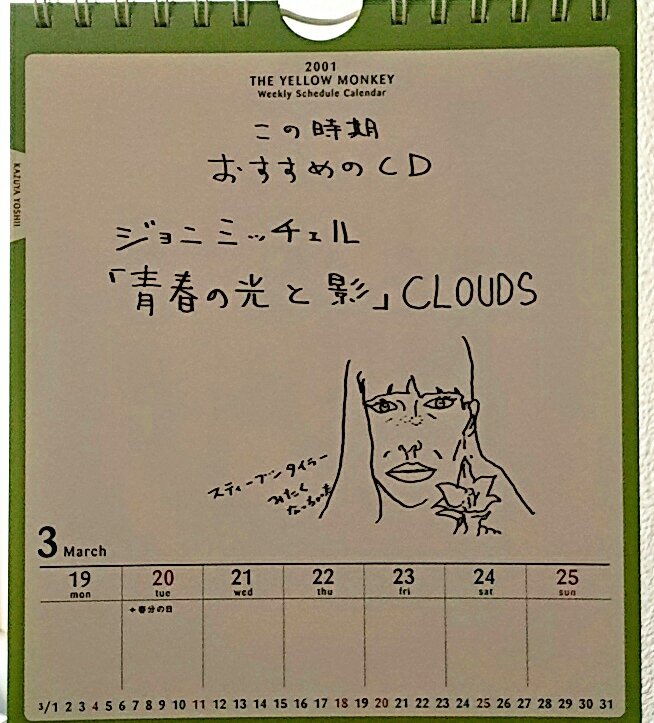 2001
THE YELLOW MONKEY
Weekly Schedule Calendar
KAZUYA YOSHII
この時期
おすすめのCD
ジョニミッチェル
「青春の光と影」CLOUDS
スティーブンタイラー
みたく
なっちゃった
3 March
19 20 21 22 23 24 25
mon tue wed thu fri sat sun
+春分の日
3/1 2 3 4 5 6 7 8 9 10 11 12 13 14 15 16 17 18 19 20 21 22 23 24 25 26 27 28 29 30 31